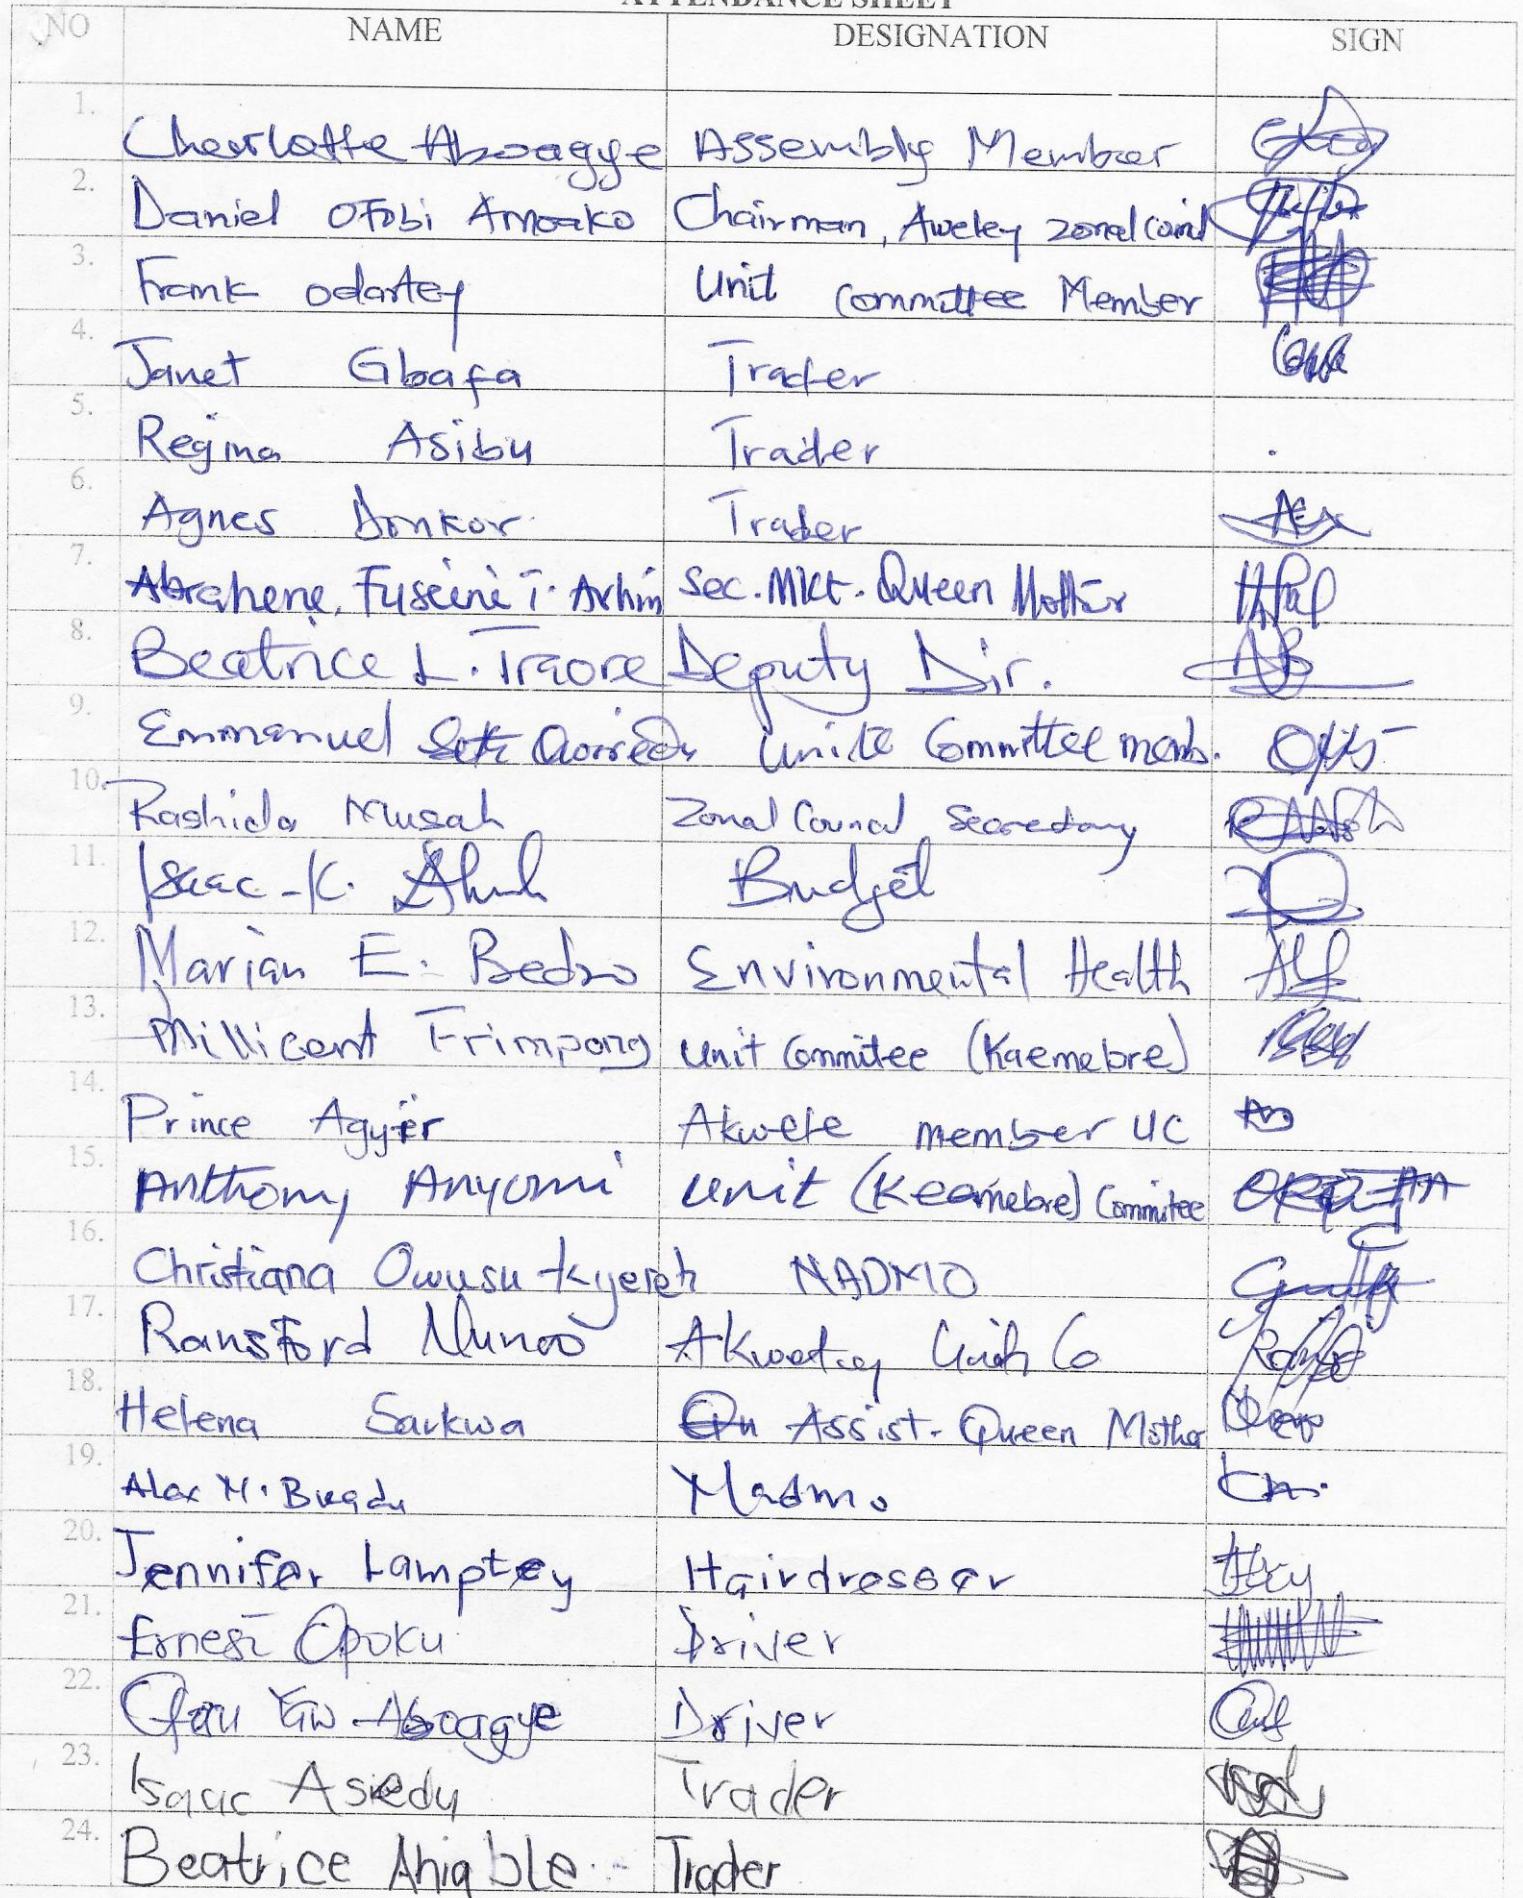 ATTENDANCE SHEET
NO NAME DESIGNATION SIGN
1. Charlotte Aboagye Assembly Member
2. Daniel Ofobi Amoako Chairman, Aweley zonal
3. Frank Odartey Unit Committee Member
4. Janet Gbafa Trader
5. Regina Asibu Trader
6. Agnes Donkor Trader
7. Abrahene, Fuseini T. Arhin Sec. Mkt. Queen Mother
8. Beatrice L. Traore Deputy Dir.
9. Emmanuel Unite Committee memb.
10. Rashida Musah Zonal Council Secredary
11. Isaac K. Budget
12. Marian E. Bedzo Environmental Health
13. Millicent Frimpong Unit Commitee (Kaemebre)
14. Prince Akwete member UC
15. Anthony Anyomi Unit (Keamebre) Commitee
16. Christiana Owusu-Kyereh NADMO
17. Ransford Nunoo
18. Helena Sarkwa Assist. Queen Mother
19. Alex M. Nadmo
20. Jennifer Lamptey Hairdresser
21. Ernest Opoku Driver
22. Yaw Aboagye Driver
23. Isaac Asiedu Trader
24. Beatrice Ahiable Trader